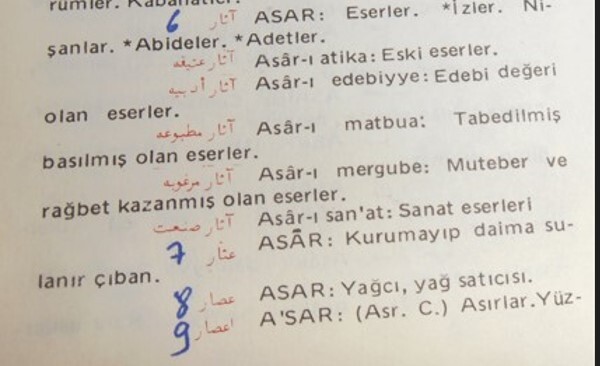 rümler. Kabahatler.
6 آثار ASAR: Eserler. *İzler. Ni-
şanlar. *Abideler. *Adetler.
آثار عتيقه Asâr-ı atika: Eski eserler.
آثار أدبيه Asâr-ı edebiyye: Edebi değeri
olan eserler.
آثار مطبوعه Asâr-ı matbua: Tabedilmiş
basılmış olan eserler.
آثار مرغوبه Asâr-ı mergube: Muteber ve
rağbet kazanmış olan eserler.
آثار صنعت Asâr-ı san'at: Sanat eserleri
7 عثار ASÂR: Kurumayıp daima su-
lanır çıban.
8 عصار ASAR: Yağcı, yağ satıcısı.
9 اعصار A'SAR: (Asr. C.) Asırlar.Yüz-